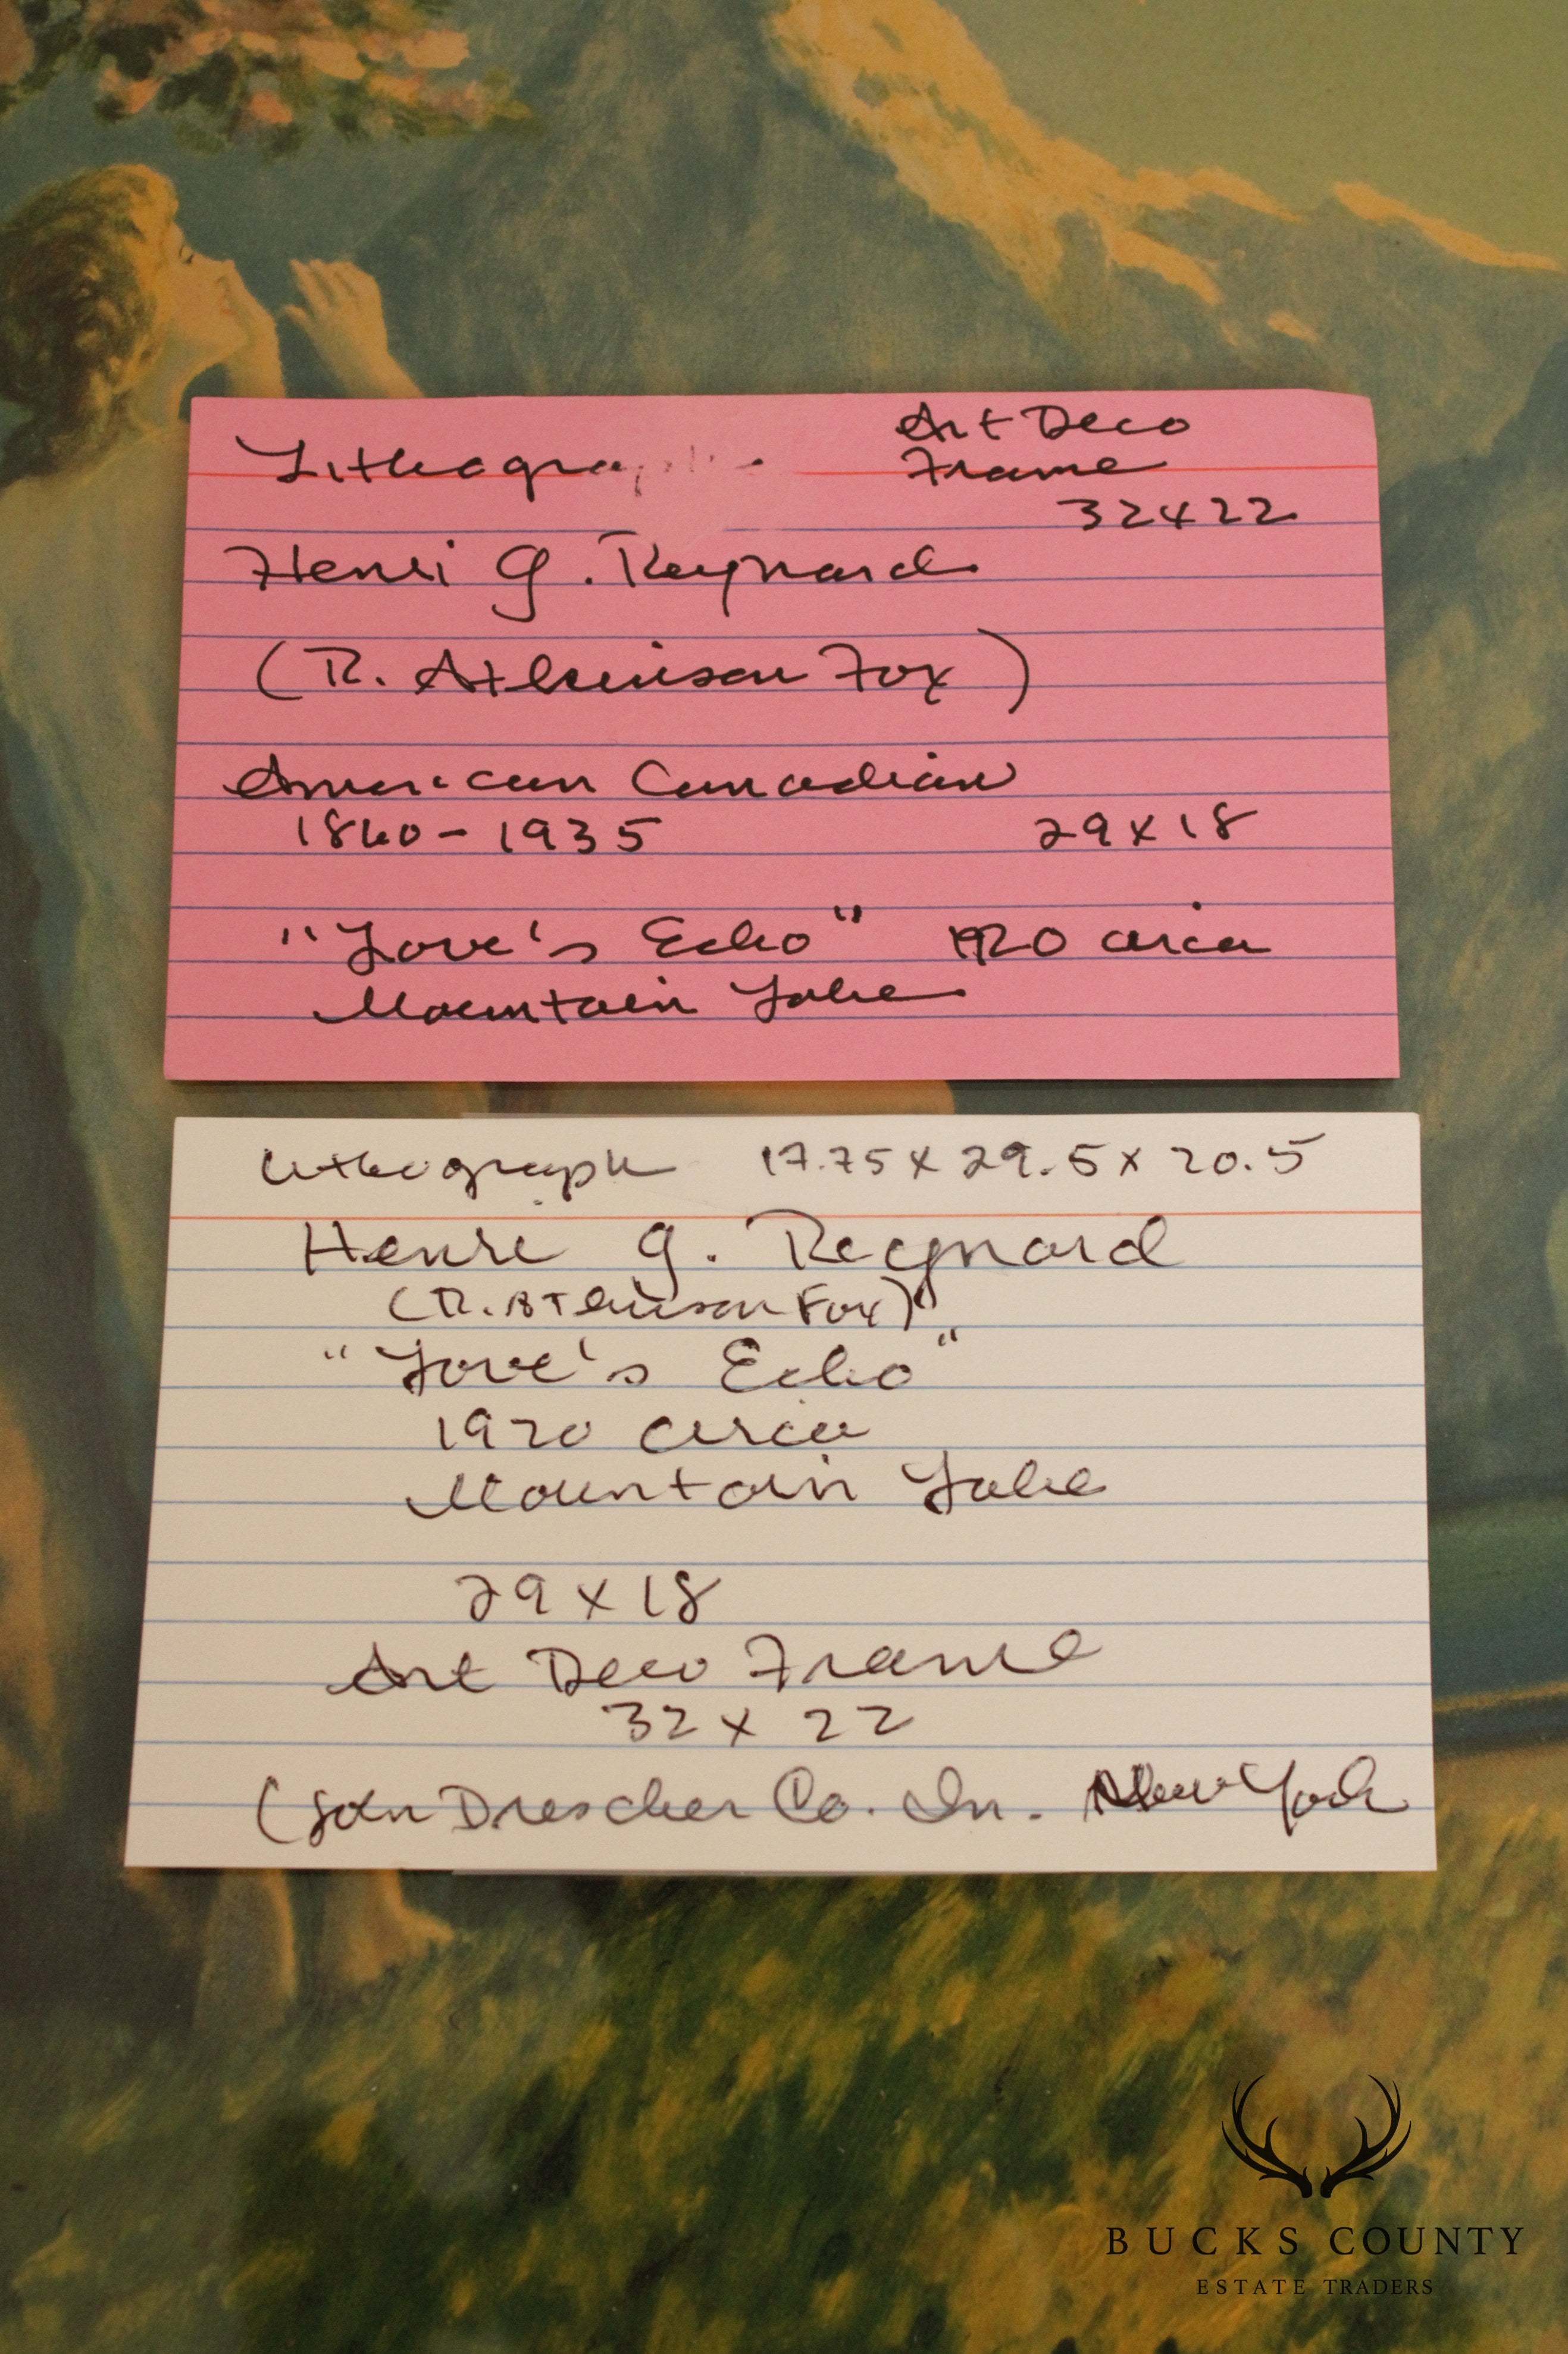 Art Deco
Lithograph Frame
32x22
Henri G. Reynard
(R. Atkinson Fox)
American Canadian
1860-1935 29x18
"Love's Echo" 1920 circa
Mountain Lake
Lithograph 17.75 x 29.5 x 20.5
Henri G. Reynard
(R. Atkinson Fox)
"Love's Echo"
1920 circa
Mountain Lake
29 x 18
Art Deco Frame
32 x 22
Drescher Co. In. New York
BUCKS COUNTY
ESTATE TRADERS